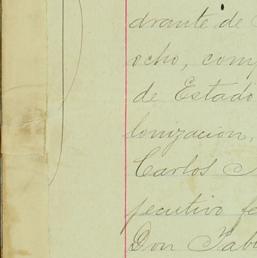 drante de
ocho, comp
de Estado
lonizacion,
Carlos
pecutivo fe
Don Pab